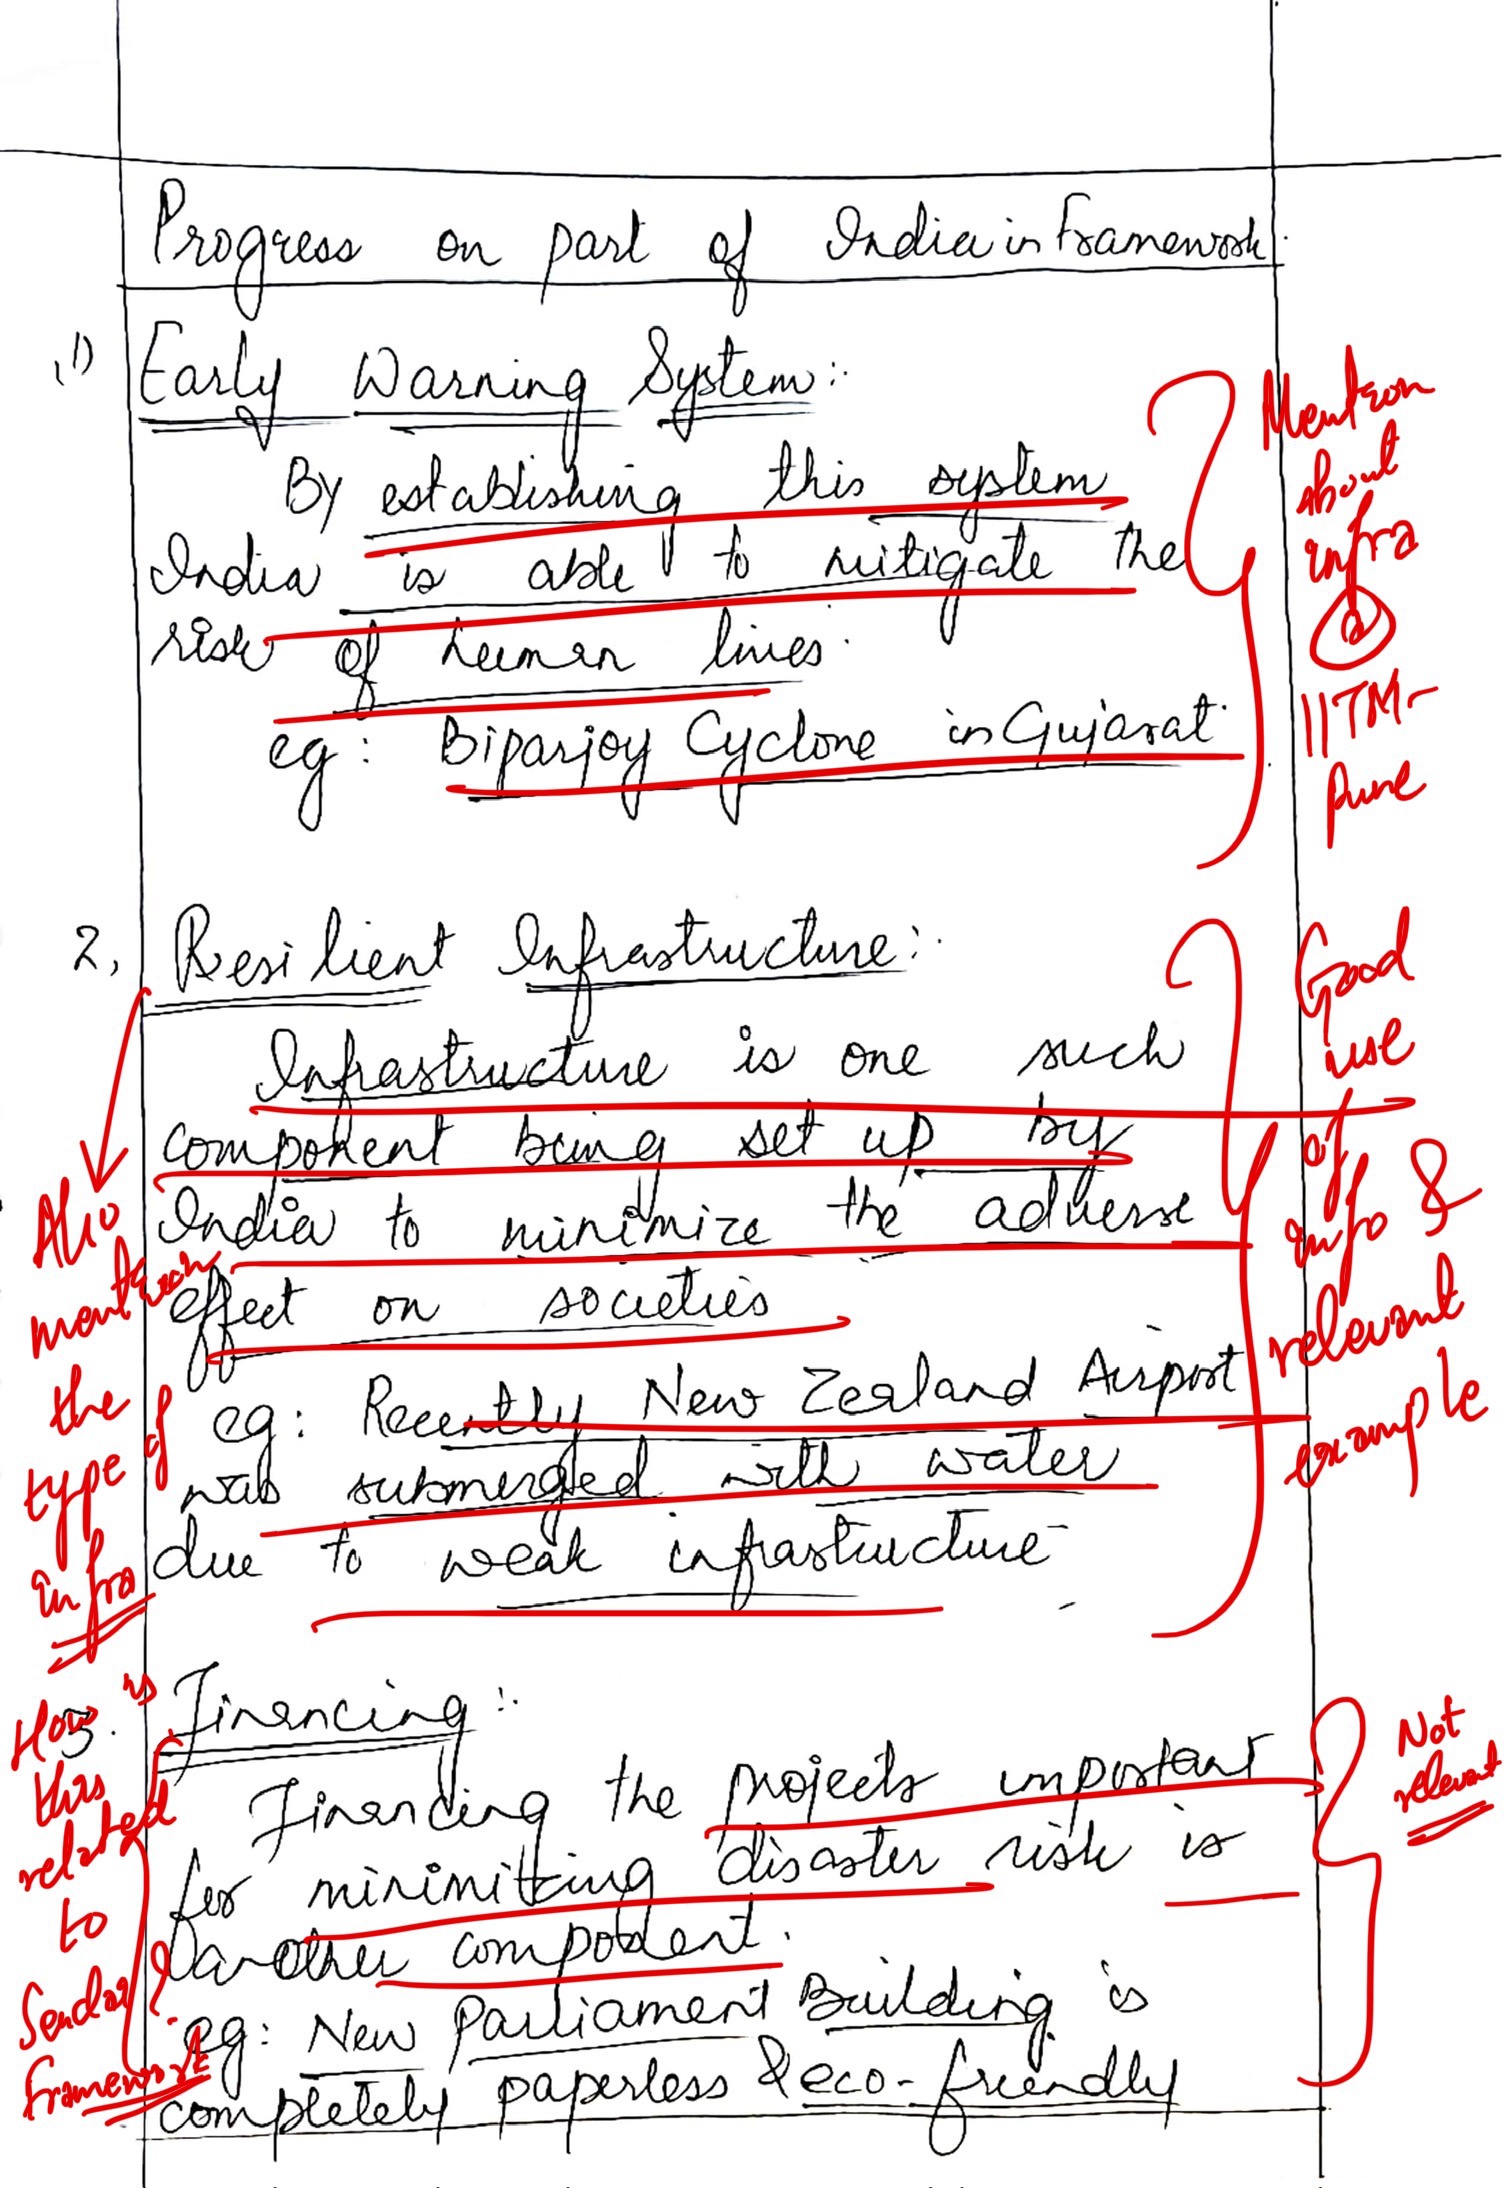 Progress on part of India in Framework.
1) Early Warning System:
By establishing this system
India is able to mitigate the
risk of human lives.
eg: Biparjoy Cyclone in Gujarat.
Mention
about
infra
@
IITM-
Pune
2, Resilient Infrastructure:
Infrastructure is one such
component being set up by
India to minimize the adverse
effect on societies
eg: Recently New Zealand Airport
was submerged with water
due to weak infrastructure
Good
use
of
info &
relevant
example
Also
mention
the
type of
infra
3. Financing:
Financing the projects important
for minimitting disaster risk is
another component.
eg: New Parliament Building is
completely paperless & eco-friendly
How is
this
related
to
Sendai
Framework?
Not
relevant